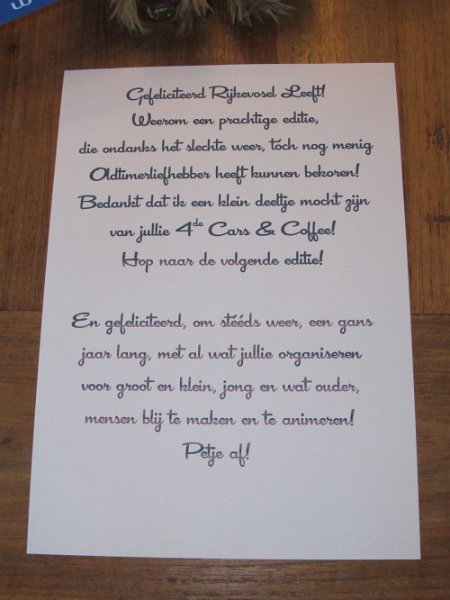 Gefeliciteerd Rijkevosel Leeft!
Weerom een prachtige editie,
die ondanks het slechte weer, tóch nog menig
Oldtimerliefhebber heeft kunnen bekoren!
Bedankt dat ik een klein deeltje mocht zijn
van jullie 4de Cars & Coffee!
Hop naar de volgende editie!
En gefeliciteerd, om stééds weer, een gans
jaar lang, met al wat jullie organiseren
voor groot en klein, jong en wat ouder,
mensen blij te maken en te animeren!
Petje af!